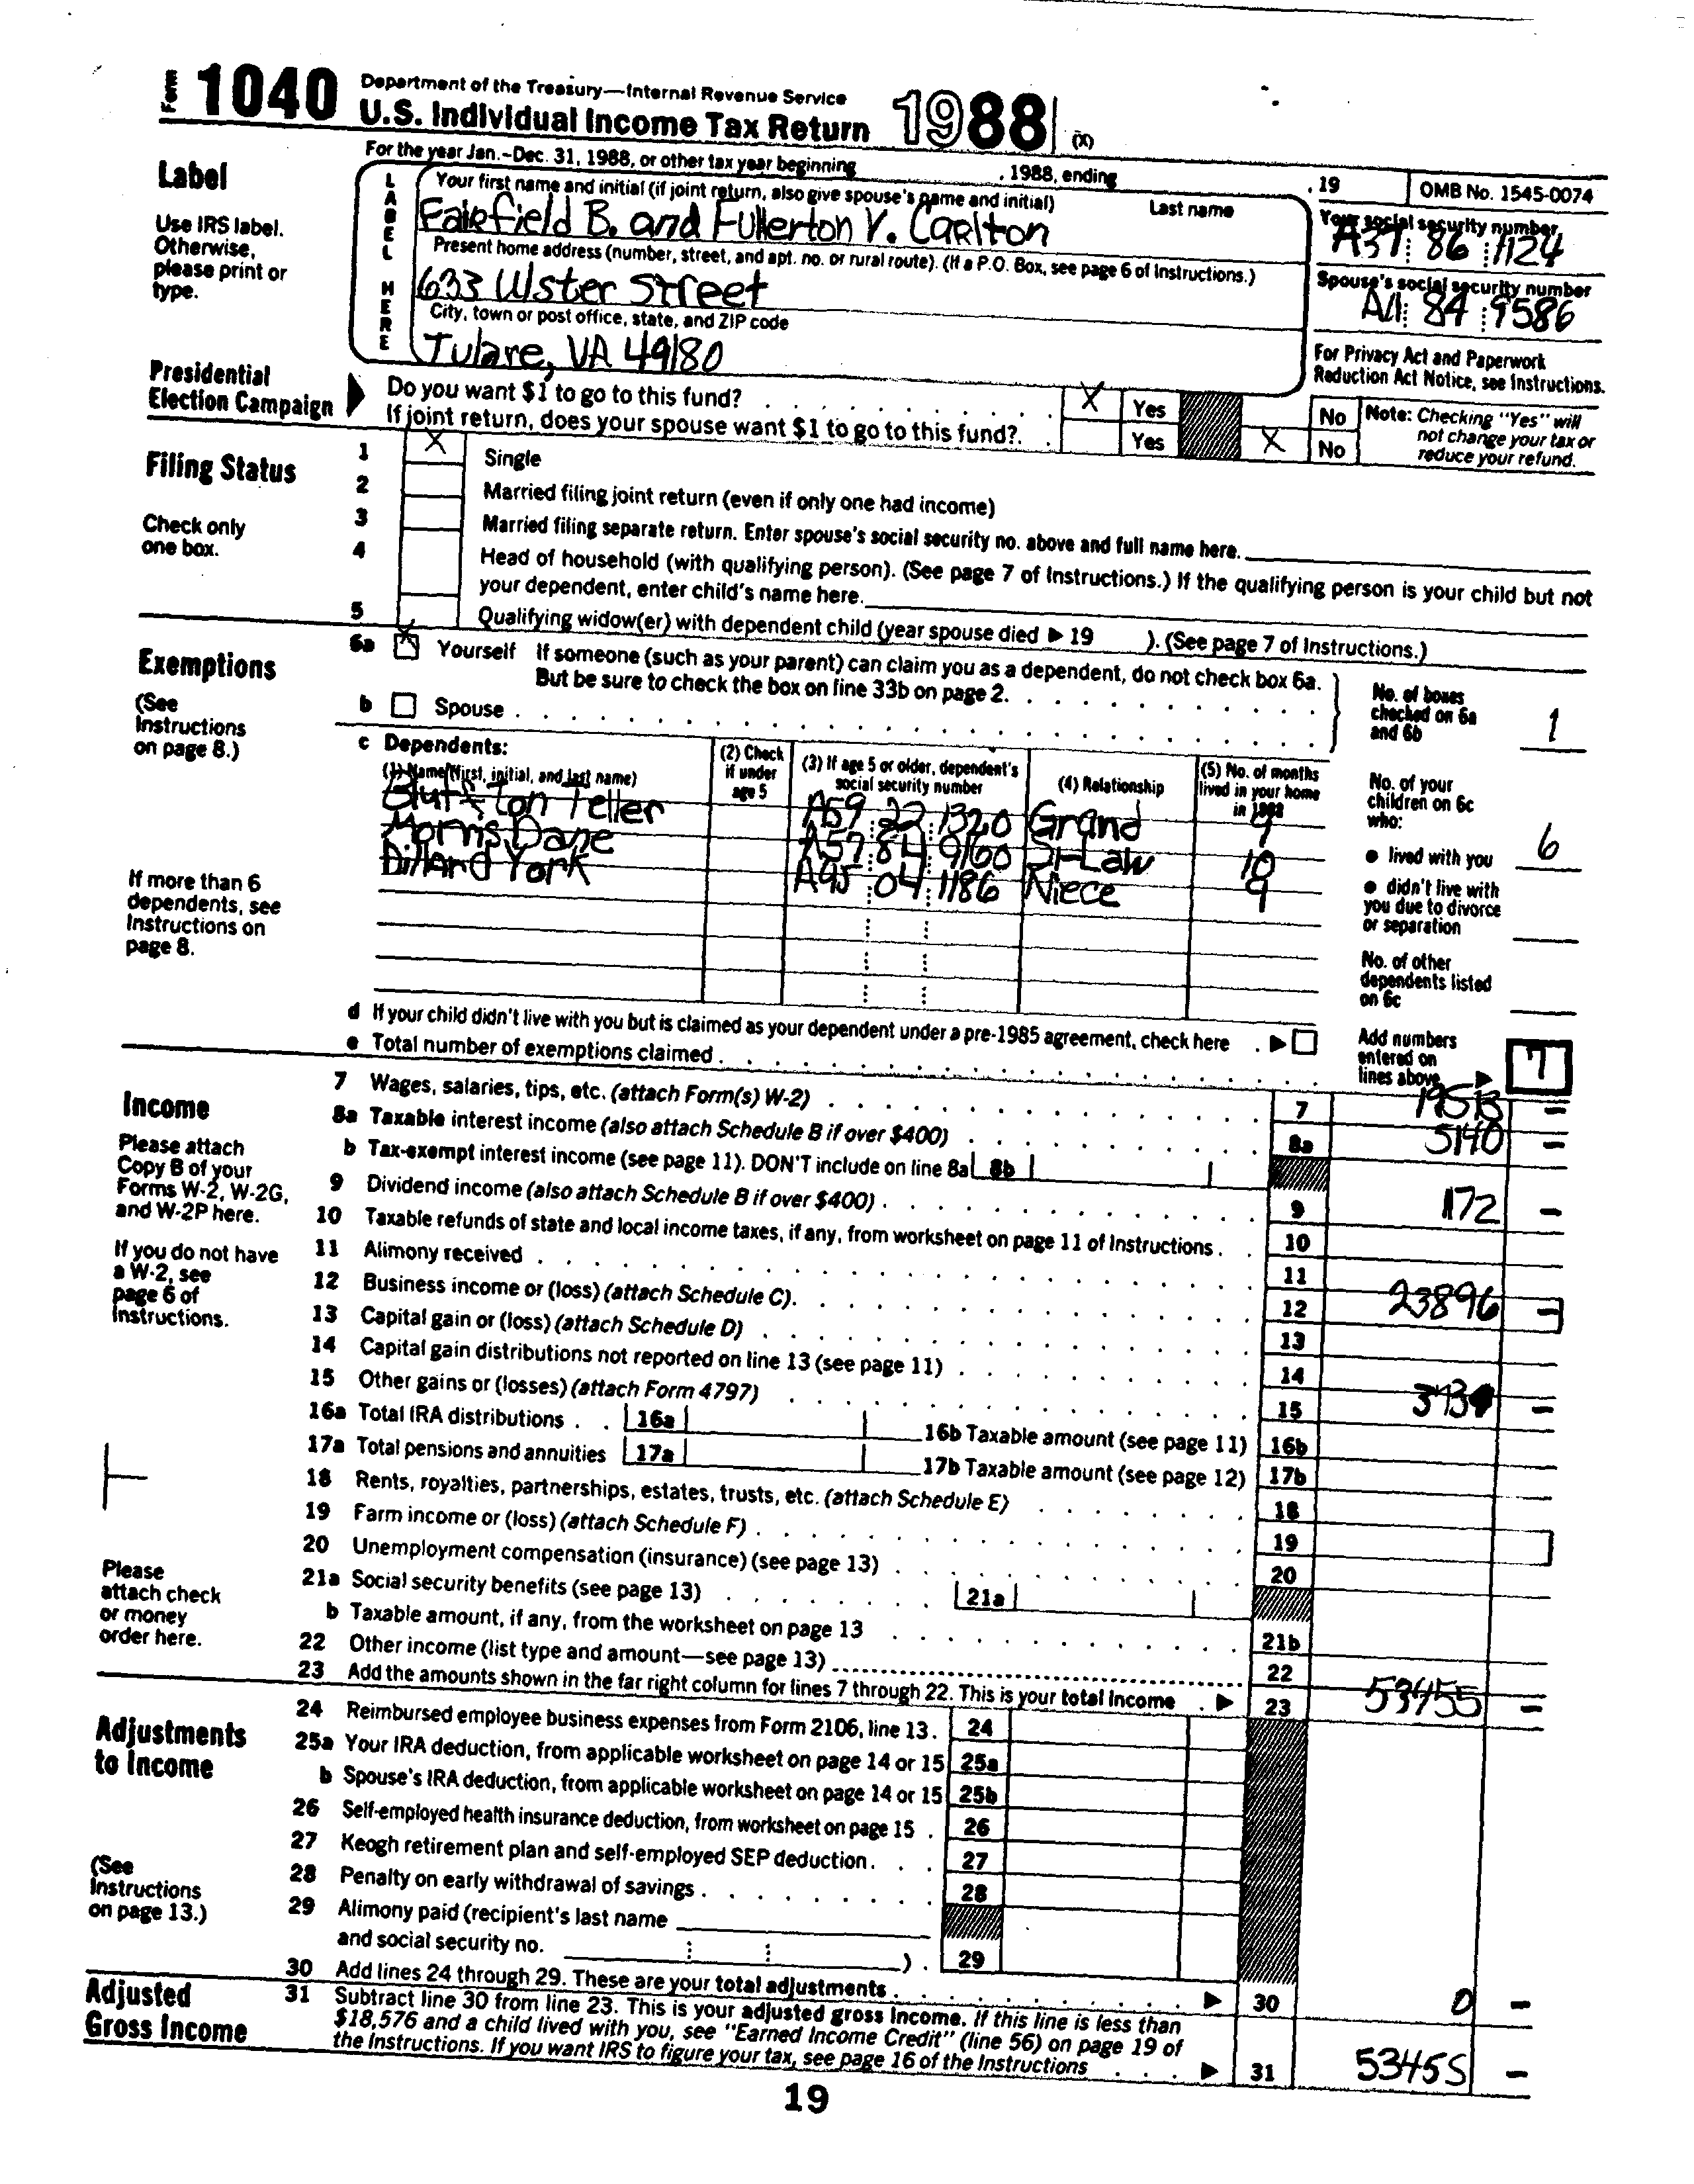 Form 1040 Department of the Treasury—Internal Revenue Service
U.S. Individual Income Tax Return 1988 (X)
For the year Jan.–Dec. 31, 1988, or other tax year beginning , 1988, ending , 19 OMB No. 1545-0074
Label
Use IRS label.
Otherwise,
please print or
type.
LABEL HERE
Your first name and initial (if joint return, also give spouse's name and initial) Last name
Fairfield B. and Fullerton V. Carlton
Your social security number
A37 86 1124
Present home address (number, street, and apt. no. or rural route). (If a P.O. Box, see page 6 of Instructions.)
633 Ulster Street
Spouse's social security number
A11 84 9586
City, town or post office, state, and ZIP code
Tulare, VA 49180
For Privacy Act and Paperwork
Reduction Act Notice, see Instructions.
Presidential
Election Campaign
Do you want $1 to go to this fund? X Yes No
If joint return, does your spouse want $1 to go to this fund? Yes X No
Note: Checking "Yes" will
not change your tax or
reduce your refund.
Filing Status
Check only
one box.
1 X Single
2 Married filing joint return (even if only one had income)
3 Married filing separate return. Enter spouse's social security no. above and full name here.
4 Head of household (with qualifying person). (See page 7 of Instructions.) If the qualifying person is your child but not
your dependent, enter child's name here.
5 Qualifying widow(er) with dependent child (year spouse died ▶ 19 ). (See page 7 of Instructions.)
Exemptions
(See
Instructions
on page 8.)
6a X Yourself If someone (such as your parent) can claim you as a dependent, do not check box 6a.
But be sure to check the box on line 33b on page 2.
b Spouse
No. of boxes
checked on 6a
and 6b 1
c Dependents:
(1) Name (first, initial, and last name)
(2) Check
if under
age 5
(3) If age 5 or older, dependent's
social security number
(4) Relationship
(5) No. of months
lived in your home
in 1988
Bluffton Teller A59 22 1320 Grand 9
Morris Dane A57 84 9160 SI-Law 10
Dillard York A95 04 1186 Niece 9
If more than 6
dependents, see
Instructions on
page 8.
No. of your
children on 6c
who:
● lived with you 6
● didn't live with
you due to divorce
or separation
No. of other
dependents listed
on 6c
d If your child didn't live with you but is claimed as your dependent under a pre-1985 agreement, check here ▶
e Total number of exemptions claimed
Add numbers
entered on
lines above ▶ 7
Income
Please attach
Copy B of your
Forms W-2, W-2G,
and W-2P here.
If you do not have
a W-2, see
page 6 of
Instructions.
Please
attach check
or money
order here.
7 Wages, salaries, tips, etc. (attach Form(s) W-2) 7 19513 –
8a Taxable interest income (also attach Schedule B if over $400) 8a 5140 –
b Tax-exempt interest income (see page 11). DON'T include on line 8a 8b
9 Dividend income (also attach Schedule B if over $400) 9 1172 –
10 Taxable refunds of state and local income taxes, if any, from worksheet on page 11 of Instructions. 10
11 Alimony received 11
12 Business income or (loss) (attach Schedule C). 12 23896 –
13 Capital gain or (loss) (attach Schedule D) 13
14 Capital gain distributions not reported on line 13 (see page 11) 14
15 Other gains or (losses) (attach Form 4797) 15 –
16a Total IRA distributions 16a 16b Taxable amount (see page 11) 16b
17a Total pensions and annuities 17a 17b Taxable amount (see page 12) 17b
18 Rents, royalties, partnerships, estates, trusts, etc. (attach Schedule E) 18
19 Farm income or (loss) (attach Schedule F) 19
20 Unemployment compensation (insurance) (see page 13) 20
21a Social security benefits (see page 13) 21a
b Taxable amount, if any, from the worksheet on page 13 21b
22 Other income (list type and amount—see page 13) 22
23 Add the amounts shown in the far right column for lines 7 through 22. This is your total income ▶ 23 53455 –
Adjustments
to Income
(See
Instructions
on page 13.)
24 Reimbursed employee business expenses from Form 2106, line 13. 24
25a Your IRA deduction, from applicable worksheet on page 14 or 15 25a
b Spouse's IRA deduction, from applicable worksheet on page 14 or 15 25b
26 Self-employed health insurance deduction, from worksheet on page 15 26
27 Keogh retirement plan and self-employed SEP deduction. 27
28 Penalty on early withdrawal of savings 28
29 Alimony paid (recipient's last name
and social security no. ). 29
30 Add lines 24 through 29. These are your total adjustments ▶ 30 0 –
Adjusted
Gross Income
31 Subtract line 30 from line 23. This is your adjusted gross income. If this line is less than
$18,576 and a child lived with you, see "Earned Income Credit" (line 56) on page 19 of
the Instructions. If you want IRS to figure your tax, see page 16 of the Instructions ▶ 31 53455 –
19